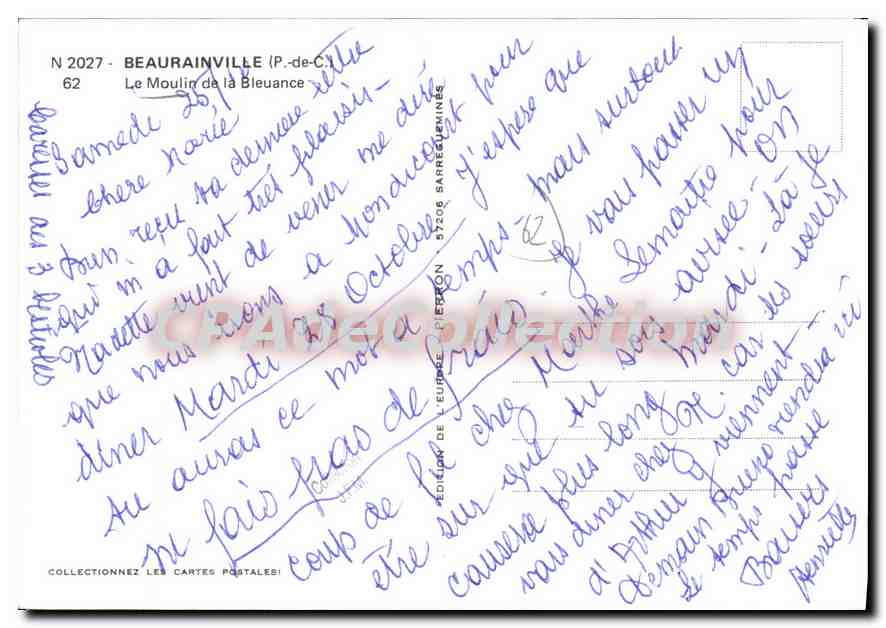 N 2027 - BEAURAINVILLE (P.-de-C.)
62 Le Moulin de la Bleuance
Samedi 25/10
Chere Marie
reçu ta derniere lettre
qui m a fait très plaisir -
Nadette vient de venir me dire
que nous irons a Mondicourt pour
diner Mardi 28 Octobre - J'espere que
tu auras ce mot a temps - mais surtout
ni fais pas de frais - Je vais passer un
coup de fil chez Marthe Lemaitre pour
être sur que tu sois avisée - on
causera plus long Mardi - Là je
vais diner chez R. car les soeurs
d'Arthur y viennent -
Demain viendra ici
Le temps passe
Baisers
Henriette
Caresses aux 3
62
EDITION DE L'EUROPE - PIERRON - 57206 SARREGUEMINES
J.F.M.
COLLECTIONNEZ LES CARTES POSTALES!
CPAdeCollection